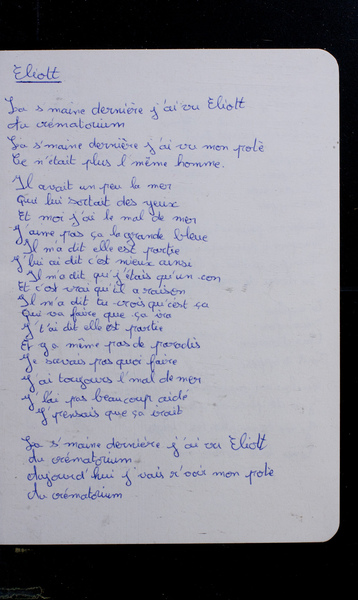 Eliott
La s'maine dernière j'ai vu Eliott
du crématorium
La s'maine dernière j'ai vu mon potè
Ce n'était plus l'même homme.
Il avait un peu la mer
Qui lui sortait des yeux
Et moi j'ai le mal de mer
J'aime pas ça la grande bleue
Il m'a dit elle est partie
J'lui ai dit c'est mieux ainsi
Il m'a dit qu'j'étais qu'un con
Et c'est vrai qu'il a raison
Il m'a dit tu crois qu'c'est ça
Qui va faire que ça ira
J't'ai dit elle est partie
Et y a même pas de paradis
Je savais pas quoi faire
J'ai toujours l'mal de mer
J'l'ai pas beaucoup aidé
J'pensais que ça irait
La s'maine dernière j'ai vu Eliott
du crématorium
Aujourd'hui j'vais r'voir mon potè
du crématorium